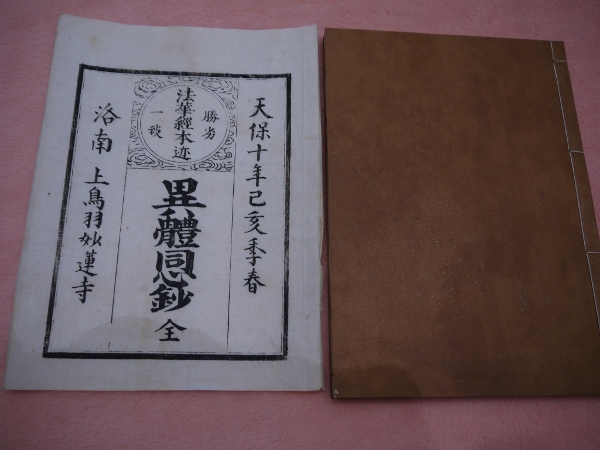 天保十年己亥季春
法華經本迹
勝劣
一致
異體同心鈔
全
洛南 上鳥羽妙蓮寺